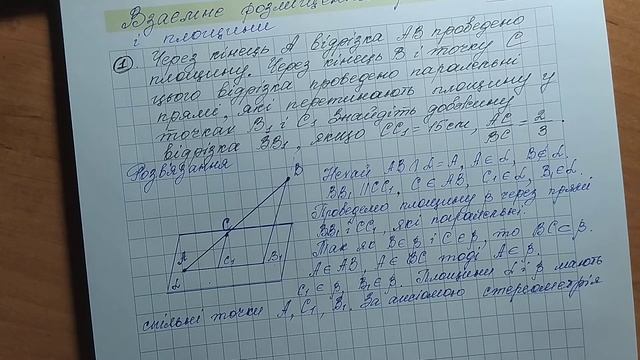 Взаємне розміщення
і площини
① Через кінець А відрізка АВ проведено
площину. Через кінець В і точку С
цього відрізка проведено паралельні
прямі, які перетинають площину у
точках B₁ і C₁. Знайдіть довжину
відрізка BB₁, якщо CC₁ = 15см, AC/BC = 2/3.
Розв'язання
Нехай AB ∩ α = A, A ∈ α, B ∉ α.
BB₁ || CC₁, C ∈ AB, C₁ ∈ α, B₁ ∈ α.
Проведемо площину β через прямі
BB₁ і CC₁, які паралельні.
Так як B ∈ β і C ∈ β, то BC ⊂ β.
A ∈ AB, A ∈ BC тоді A ∈ β.
C₁ ∈ β, B₁ ∈ β. Площини α і β мають
спільні точки A, C₁, B₁. За аксіомою стереометрія
B
C
A
C₁
B₁
α